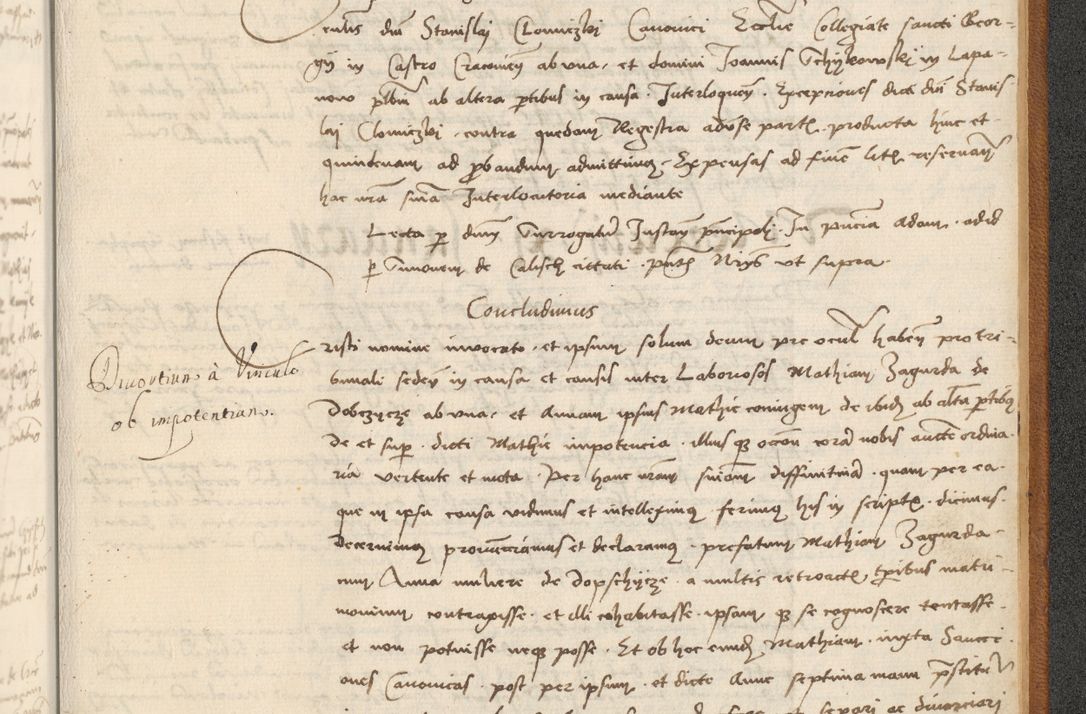 rabilis dni Stanislaj Clomiczkj Canonici Ecclie Collegiate sancti Geor-
gij in Castro Cracovien ab vna, et domini Joannis Schÿkowskj in Lapa-
now plbm ab altera ptibus in causa. Interloquen. Exceptiones dicti dni Stanis-
laj Clomiczkj. contra quedam Regestra adverse part. producta hinc et
quindenam ad pbandum admittimus. Expensas ad finem lit. reservan
hac nra snia Interlocutoria mediante
Lecta p dnum Surrogatum Instan principalj. In pncia Adam.
p Simonem de Calisch citati. part. Nrÿs vt supra
Concludimus
Divortium à Vinculo
ob impotentiam.
risti nomine invocato. et ipsum solum deum pre ocul habeñ pro tri-
bunali sedeñ in causa et causis inter Laboriosos Mathiam Zagurda de
Dobczÿcze ab vna, et Annam ipsius Mathie coniugem de ibid ab altra ptibus
De et sup. dicti Mathie impotencia. illiusqz occon cora nobis aucte ordina-
ria vertente et mota. Per hanc nram sniam diffinitiva. quam per ea
que in ipsa causa vidimus et intelleximus. ferimus his in script. dicimus
decernimus pronunciamus et declaramus. prefatum Mathiam Zagurda
cum Anna muliere de Dopschÿcze. a multis retroact tpribus matri-
monium contraxisse. et illi cohabitasse. ipsam qz se cognoscere tentasse.
et non potuisse neqz posse. Et ob hoc eund Mathiam. iuxta Sancci-
ones Canonicas. post per ipsum. et dicte Anne septima manu prstitu
et separi ac divorciari